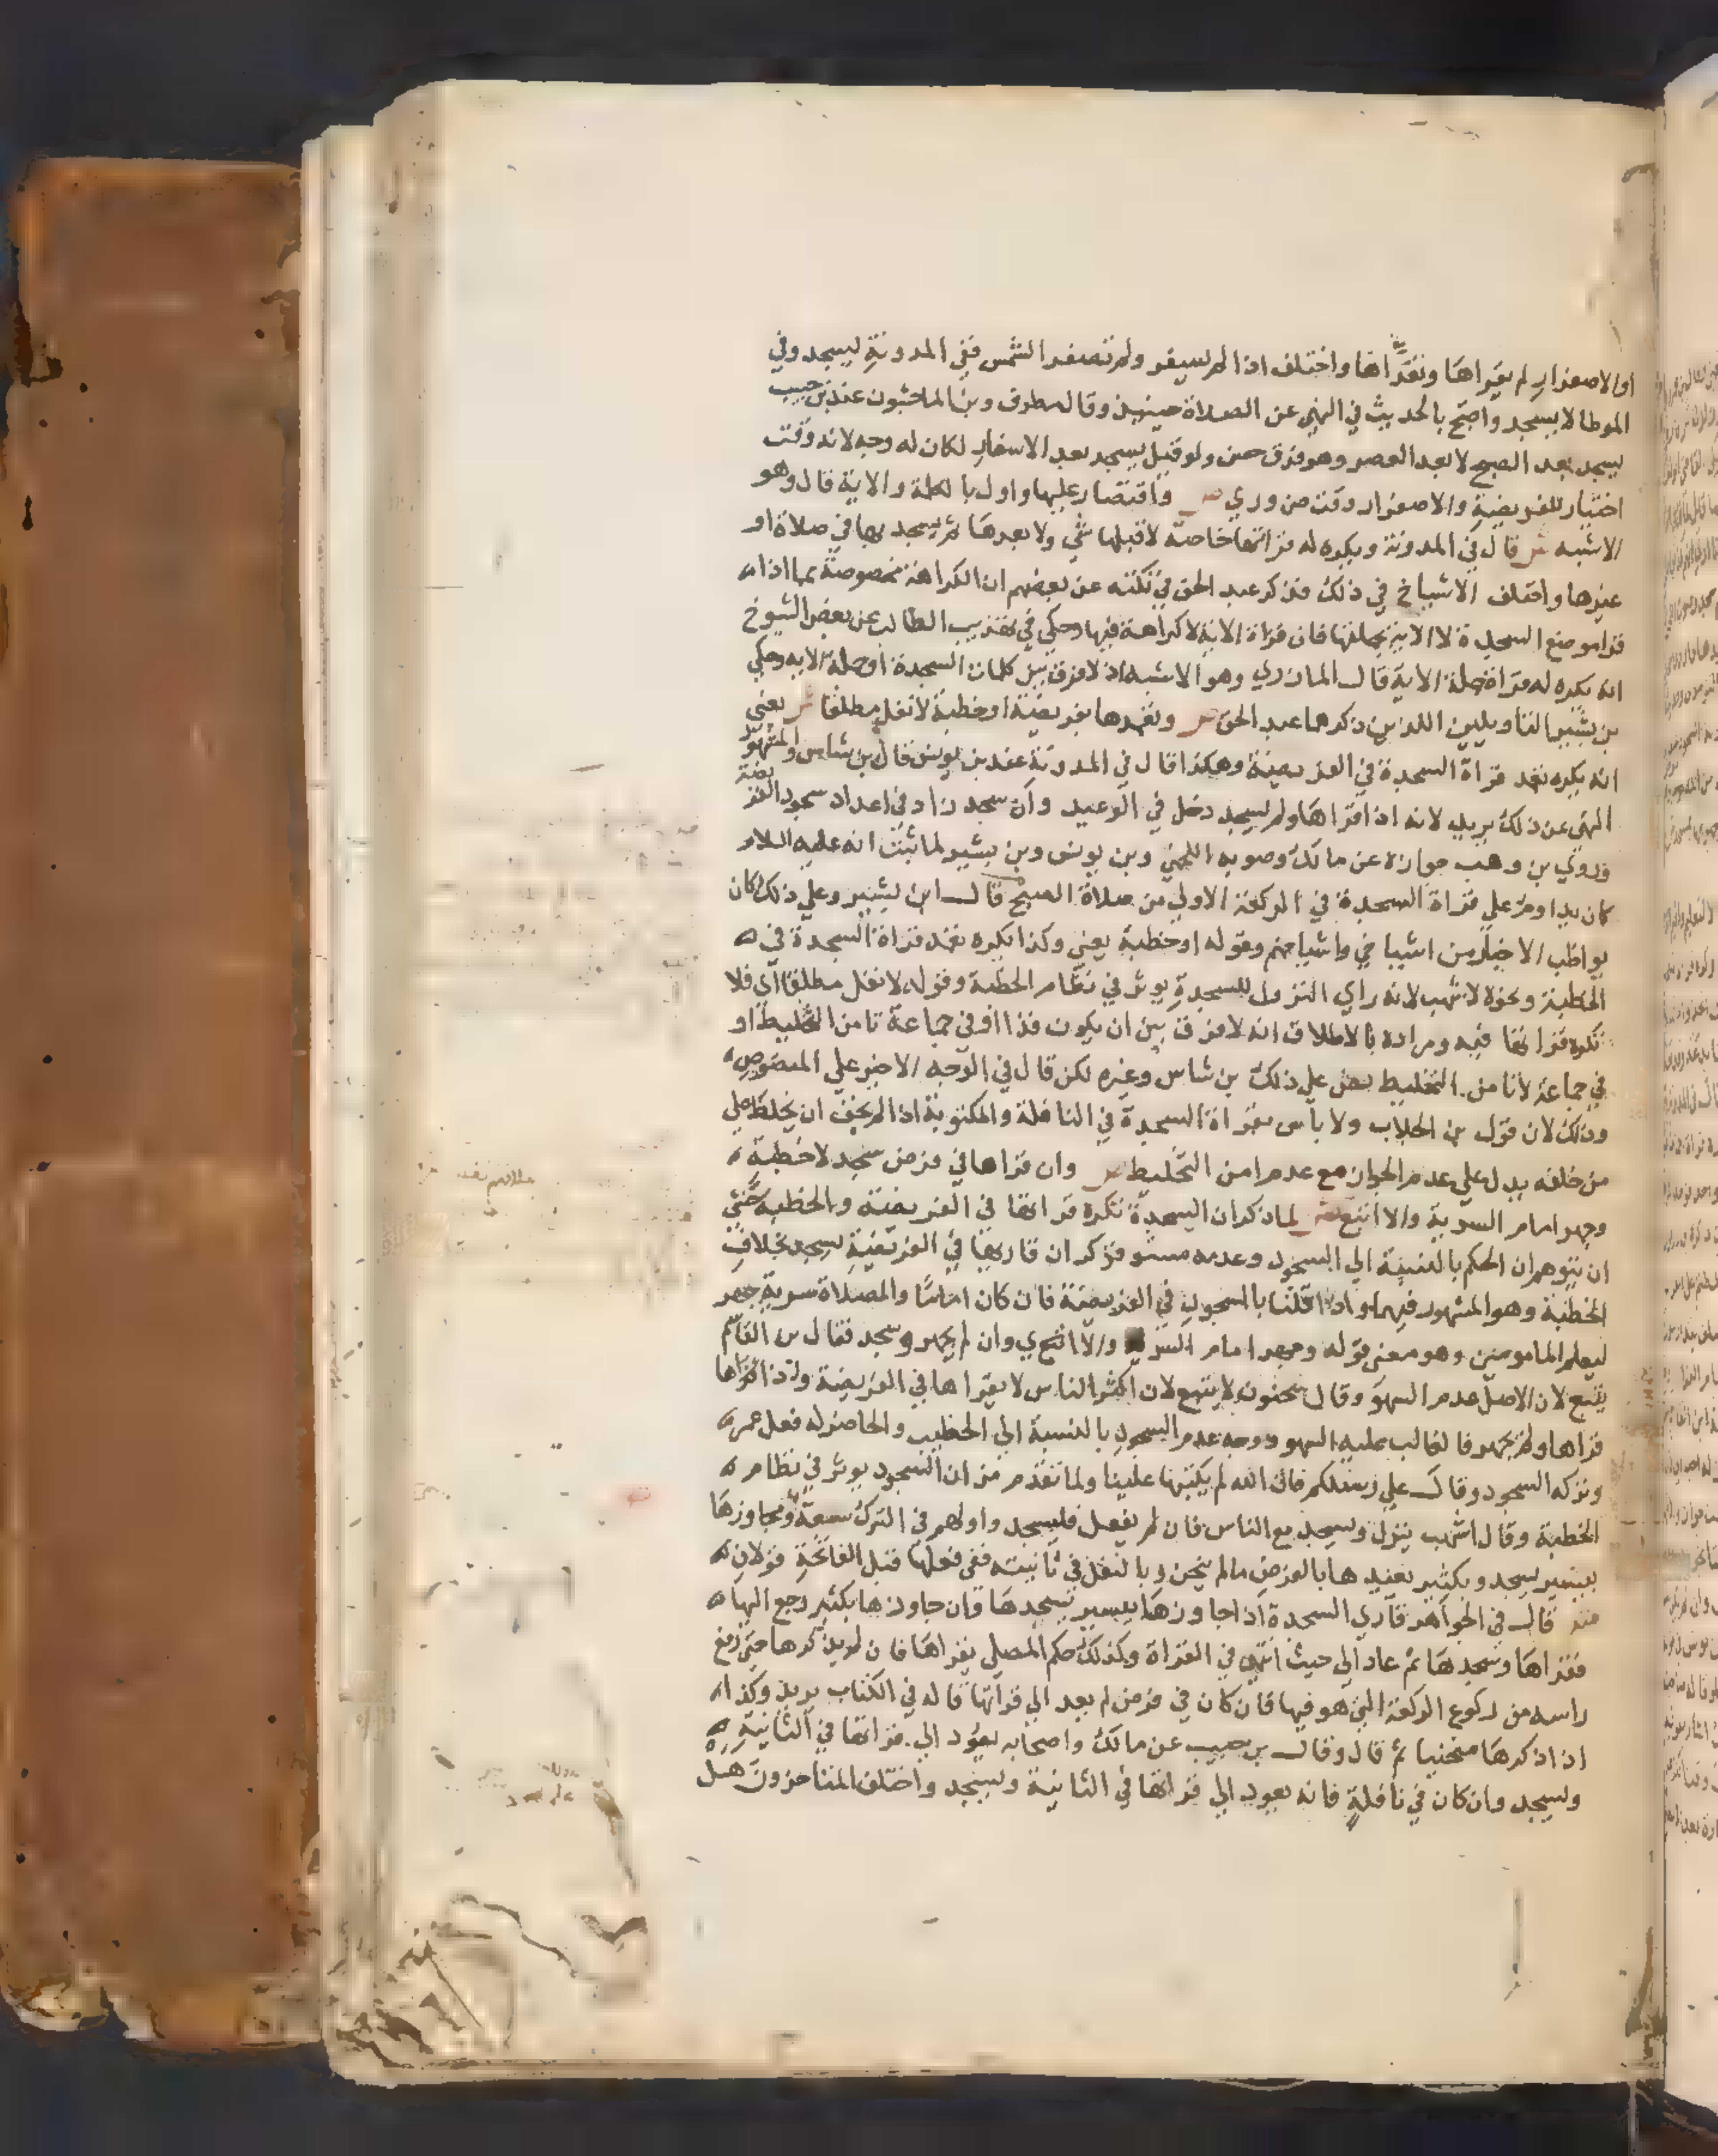 او الاصفرار لم يقراها وتعداها واختلف اذا لم يسفر ولم تصفر الشمس ففي المدونة يسجد وفي
الموطا لا يسجد واحتج بالحديث في النهي عن الصلاة حينيذ وقال مطرف وبن الماجشون عند بن حبيب
يسجد بعد الصبح لا بعد العصر وهو فرق حسن ولو قيل يسجد بعد الاسفار لكان له وجه لانه وقت
اختيار للفريضة والاصفرار وقت ضروري ص واقتصار عليها واول بالكلمة والاية قال وهو
الاشبه ش قال في المدونة ويكره له قراتها خاصة لا قبلها شي ولا بعدها ثم يسجد بها في صلاة او
غيرها واختلف الاشياخ في ذلك فذكر عبد الحق في نكته عن بعضهم ان الكراهة مخصوصة بما اذا
قرا موضع السجدة لا الاية بجملتها فان قراة الاية لا كراهة فيها وحكي في تهذيب الطالب عن بعض الشيوخ
انه يكره له قراة جملة الاية قال المازري وهو الاشبه اذ لا فرق بين كلمات السجدة او جملة الاية وحكي
بن بشير التاويلين اللذين ذكرهما عبد الحق ص وتعمدها بفريضة او خطبة لا نفل مطلقا ش يعني
انه يكره تعمد قراة السجدة في الفريضة وهكذا قال في المدونة عند بن يونس قال بن شاس والمشهور
النهي عن ذلك يريد لانه اذا قراها ولم يسجد دخل في الوعيد وان سجد زاد في اعداد سجود الفريضة
وروي بن وهب جوازه عن مالك وصوبه اللخمي وبن يونس وبن بشير لما ثبت انه عليه السلام
كان يداوم على قراة السجدة في الركعة الاولي من صلاة الصبح قال ابن بشير وعلي ذلك كان
يواظب الاخيار من اشياخي واشياخهم وقوله او خطبة يعني وكذا يكره تعمد قراة السجدة في
الخطبة ونحوه لاشهب لانه راي النزول للسجدة يوثر في نظام الخطبة وقوله لا نفل مطلقا اي فلا
تكره قراتها فيه ومراده بالاطلاق انه لا فرق بين ان يكون فذا او في جماعة تامن التخليط او
في جماعة لا تامن التخليط نص علي ذلك بن شاس وغيره لكن قال في الوجه الاخير علي المنصوص
وذلك لان قول بن الجلاب ولا باس بقراة السجدة في النافلة والمكتوبة اذا لم يخف ان يخلط علي
من خلفه يدل علي عدم الجواز مع عدم امن التخليط ص وان قراها في فرض سجد لا خطبة
وجهر امام السرية والا اتبع ش لما ذكر ان السجدة تكره قراتها في الفريضة والخطبة خشي
ان يتوهم ان الحكم بالنسبة الي السجود وعدمه مستو فذكر ان قاريها في الفريضة يسجد بخلاف
الخطبة وهو المشهور فيهما واذا قلنا بالسجود في الفريضة فان كان اماما والصلاة سرية جهر
ليعلم المامومين وهو معنى قوله وجهر امام السرية والا اتبع اي وان لم يجهر وسجد فقال بن القاسم
يتبع لان الاصل عدم السهو وقال سحنون لا يتبع لان اكثر الناس لا يقراها في الفريضة واذا قراها
قراها ولم يجهر فالغالب عليه السهو ووجه عدم السجود بالنسبة الي الخطيب والحاضر له فعل عمر
وتركه السجود وقال علي رسلكم فان الله لم يكتبها علينا ولما تقدم من ان السجود يوثر في نظام
الخطبة وقال اشهب ينزل ويسجد مع الناس فان لم يفعل فليسجد واولهم في الترك سعة ومجاوزها
بيسير يسجد وبكثير يعيدها بالفرض ما لم ينحن وبالنفل في ثانيته ففي فعلها قبل الفاتحة قولان
ش قال في الجواهر قاري السجدة اذا جاوزها بيسير سجدها وان جاوزها بكثير رجع اليها
فقراها وسجدها ثم عاد الي حيث انتهي في القراة وكذلك حكم المصلي يقراها فان لم يذكرها حتي رفع
راسه من ركوع الركعة التي هو فيها فان كان في فرض لم يعد الي قراتها قاله في الكتاب يريد وكذا
اذا ذكرها منحنيا ثم قال وقال بن حبيب عن مالك واصحابه يعود الي قراتها في الثانية
ويسجد وان كان في نافلة فانه يعود الي قراتها في الثانية ويسجد واختلف المتاخرون هل